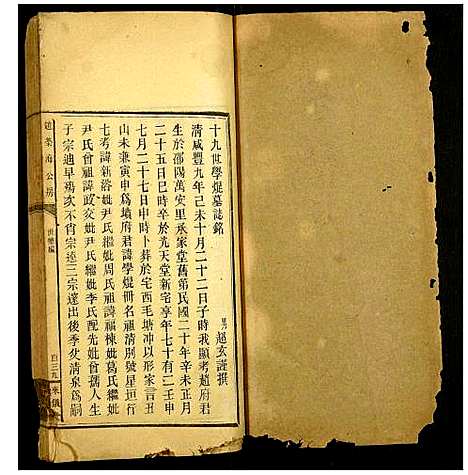 十九世學焜墓誌銘
男乃超玄謹撰
清咸豐九年己未十月二十二日子時我顯考趙府君
生於邵陽萬安里承家堂舊第民國二十年辛未正月
二十五日巳時卒於光天堂新宅享年七十有二壬申
七月二十七日申時卜葬於宅西毛塘冲以形家言丑
山未兼寅申爲墳府君諱學焜冊名祖清別號星垣行
七考諱新溶妣尹氏繼妣周氏祖諱福棟妣葛氏繼妣
尹氏曾祖諱政交妣尹氏繼妣李氏配先妣曾孺人生
子宗迪早殤次不肖宗逵三宗達出後季父清泉爲嗣
公房
世懋編
百三九
來儀